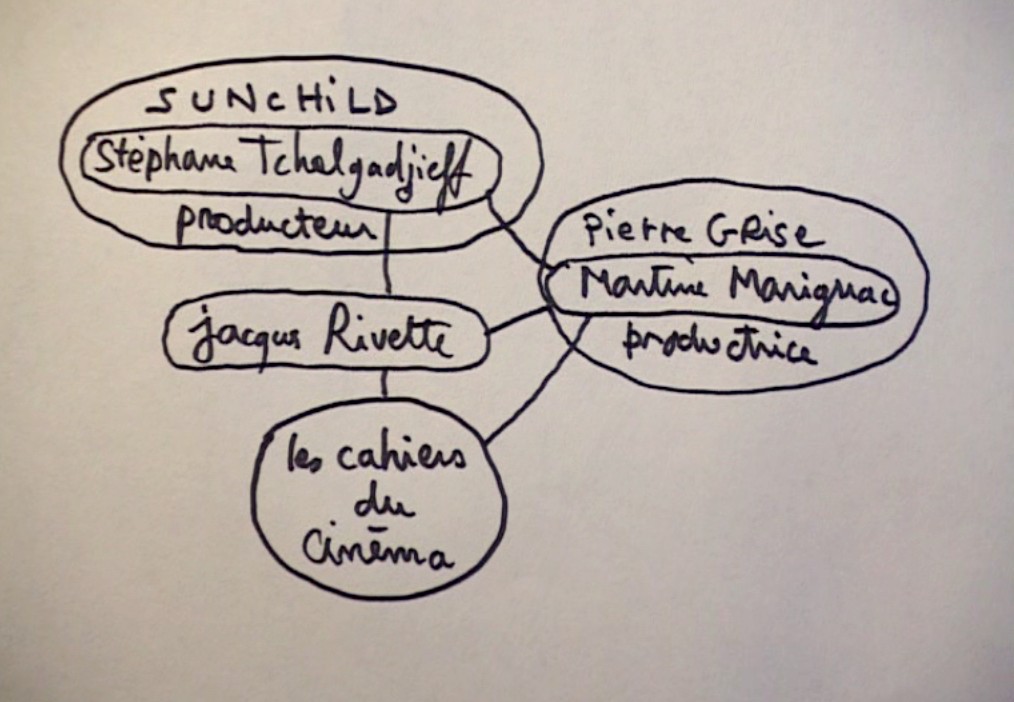 SUNCHiLD
Stéphane Tchalgadjieff
producteur
Pierre GRise
Martine Marignac
productrice
jacques Rivette
les cahiers
du
Cinéma